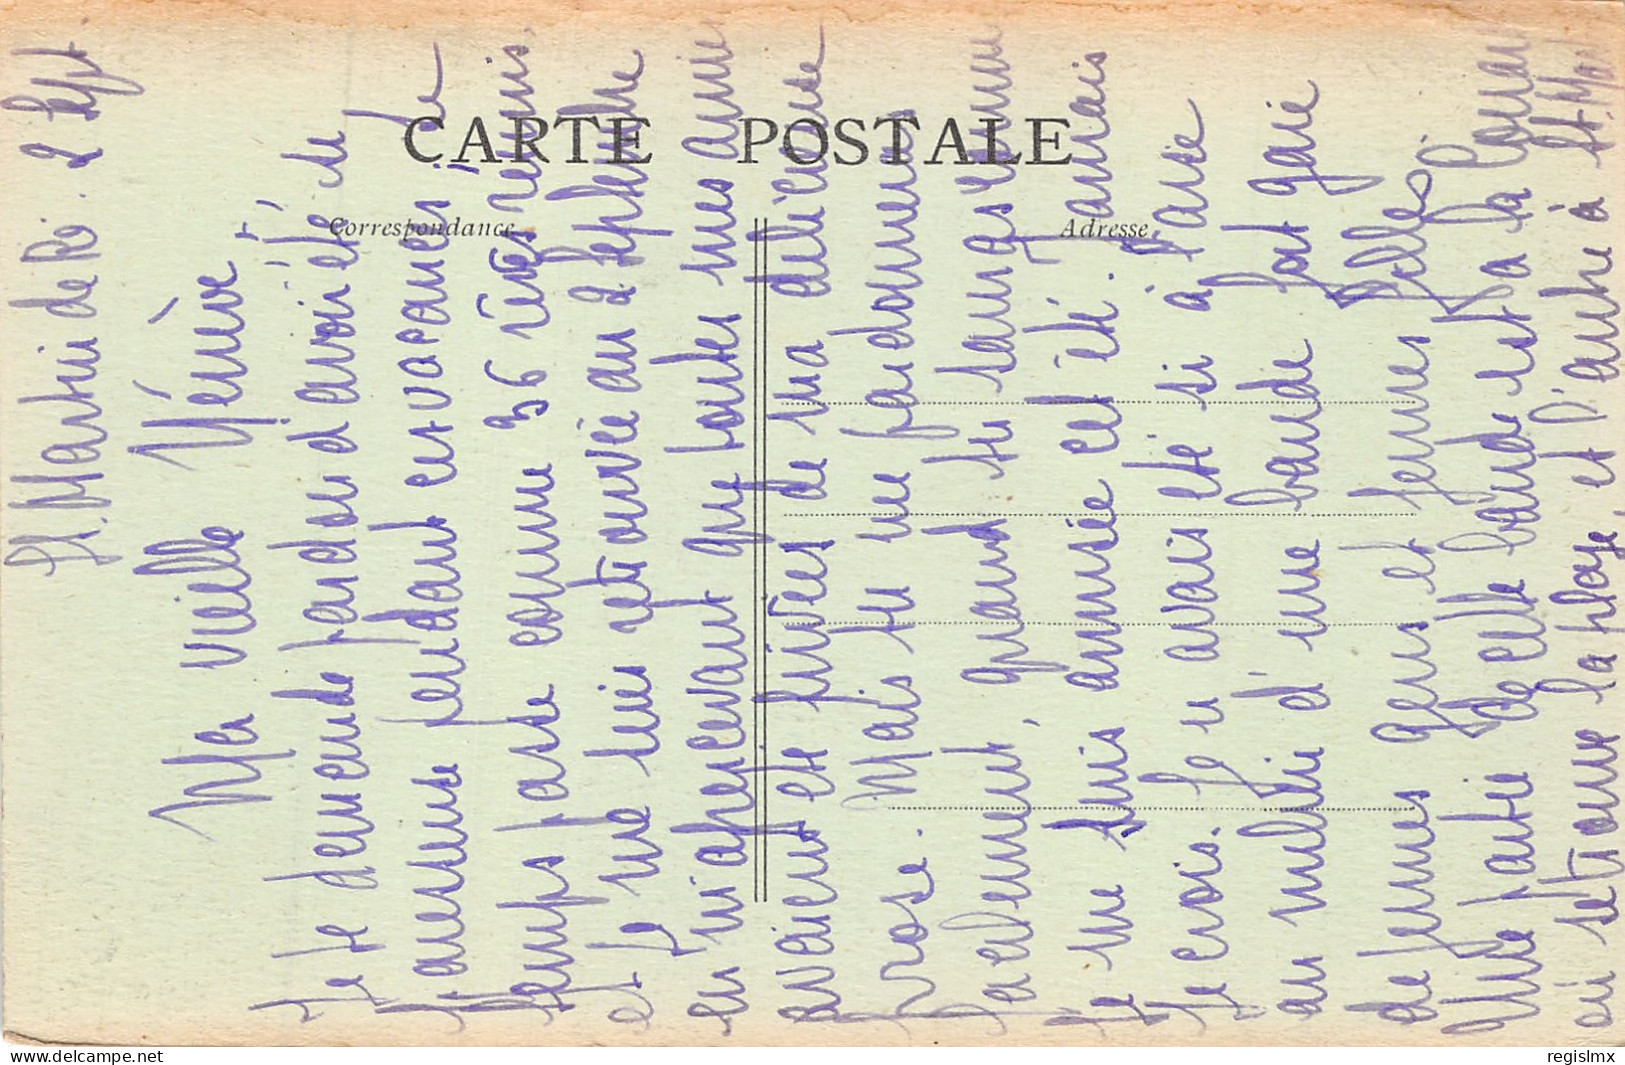 St. Martin de Ré. 2 Sept
Ma vieille Néuvé,
Je te demande pardon d'avoir été de
paresseuse pendant en vacances, le
temps passe comme 36 rêves réunis,
et je me suis retrouvée au 2 septembre
en m'apercevant que toutes mes amies
avaient été privées de ma délicieuse
prose. Mais tu me pardonneras
facilement, quand tu sauras comme
je me suis amusée cet été. Jamais
je crois. Je n'avais été si à l'aise
au milieu d'une bande fort gaie
de jeunes gens et jeunes filles
Une partie de cette bande est à la Couarde
où se trouve la plage, et l'autre à St. Mar
CARTE POSTALE
Correspondance
Adresse
regislmx